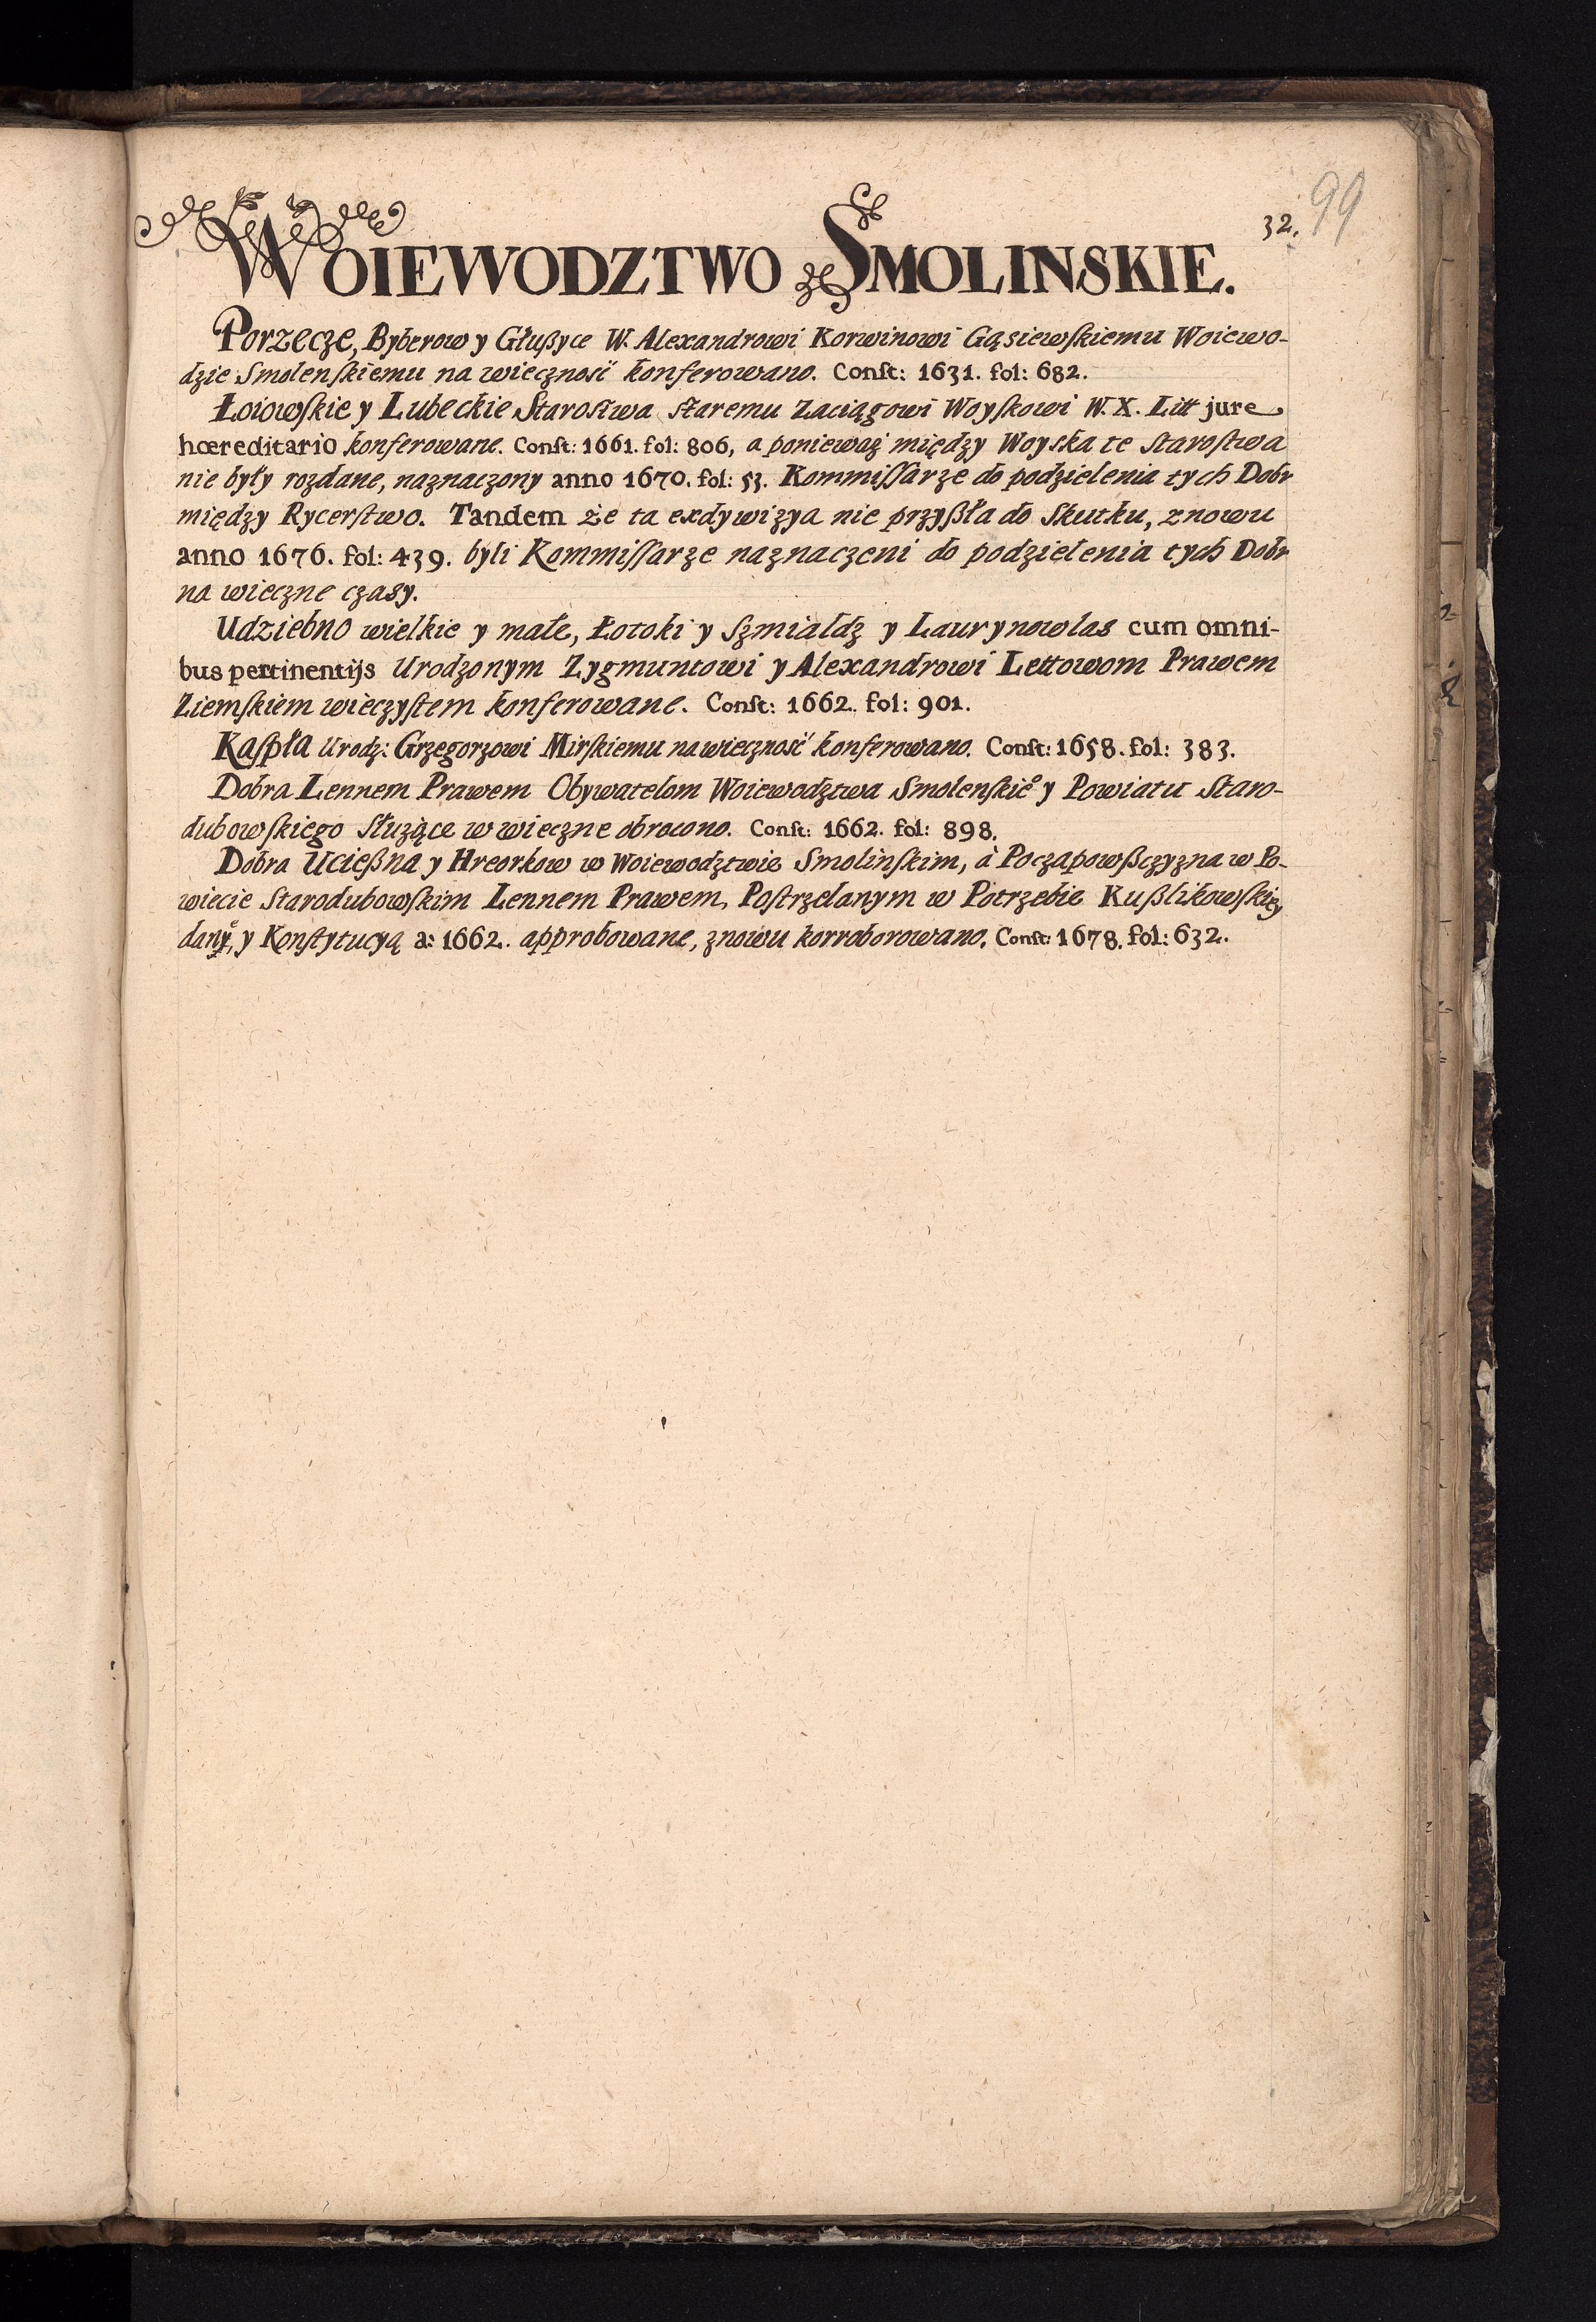 32. 99
WOIEWODZTWO SMOLINSKIE.
Porzecze, Byberow y Głußyce W. Alexandrowi Korwinowi Gąsiewſkiemu Woiewo-
dzie Smolenſkiemu na wieczność konferowano. Conſt: 1631. fol: 682.
Łoiowſkie y Lubeckie Staroſtwa ſtaremu Zaciągowi Woyſkowi W. X. Litt jure
hœreditario konferowane. Conſt: 1661. fol: 806, a ponieważ między Woyska te Staroſtwa
nie były rozdane, naznaczony anno 1670. fol: 53. Kommiſſarze do podzielenia tych Dobr
między Rycerſtwo. Tandem że ta exdywizya nie przyßła do Skutku, znowu
anno 1676. fol: 439. byli Kommiſſarze naznaczeni do podzielenia tych Dobr
na wieczne czasy.
Udziebno wielkie y małe, Łotoki y Szmialdz y Laurynowlas cum omni-
bus pertinentijs Urodzonym Zygmuntowi y Alexandrowi Lettowom Prawem
Ziemſkiem wieczyſtem konferowane. Conſt: 1662. fol: 901.
Kaſpła Urodz: Grzegorzowi Mirſkiemu na wieczność konferowano. Conſt: 1658. fol: 383.
Dobra Lennem Prawem Obywatelom Woiewodztwa Smolenſkie͛ y Powiatu Staro-
dubowſkiego Służące w wieczne obrocono. Conſt: 1662. fol: 898.
Dobra Ucießna y Hreorkow w Woiewodztwie Smolinſkim, à Poczapowßczyzna w Po-
wiecie Starodubowſkim Lennem Prawem, Poſtrzelanym w Potrzebie Kußlikowſkiey
dane, y Konſtytucyą a: 1662. approbowane, znowu korroborowano. Conſt: 1678. fol: 632.